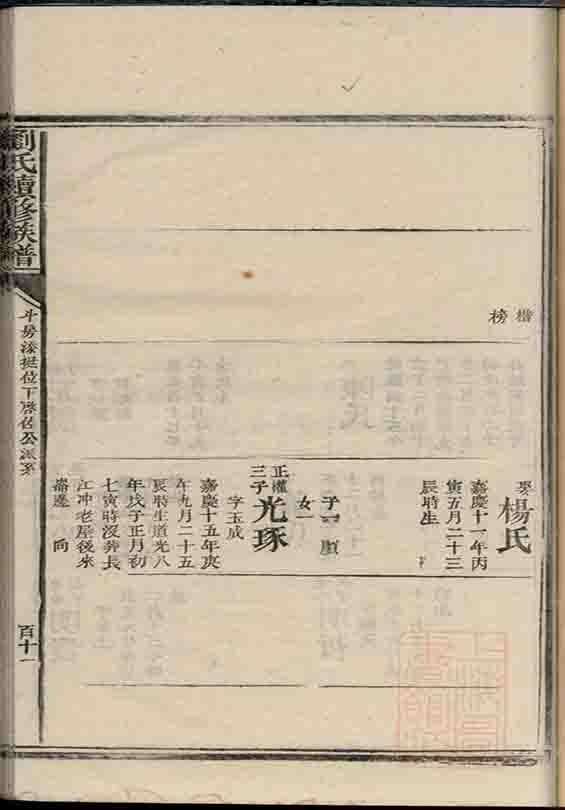 楷
榜
娶楊氏
嘉慶十一年丙
寅五月二十三
辰時生
子一
女一
正權
三子
光琢
字玉成
嘉慶十五年庚
午九月二十五
辰時生道光八
年戊子正月初
七寅時沒葬長
江冲老屋後來
崙 向
劉氏續修族譜
斗房 位下 公派系
百十一